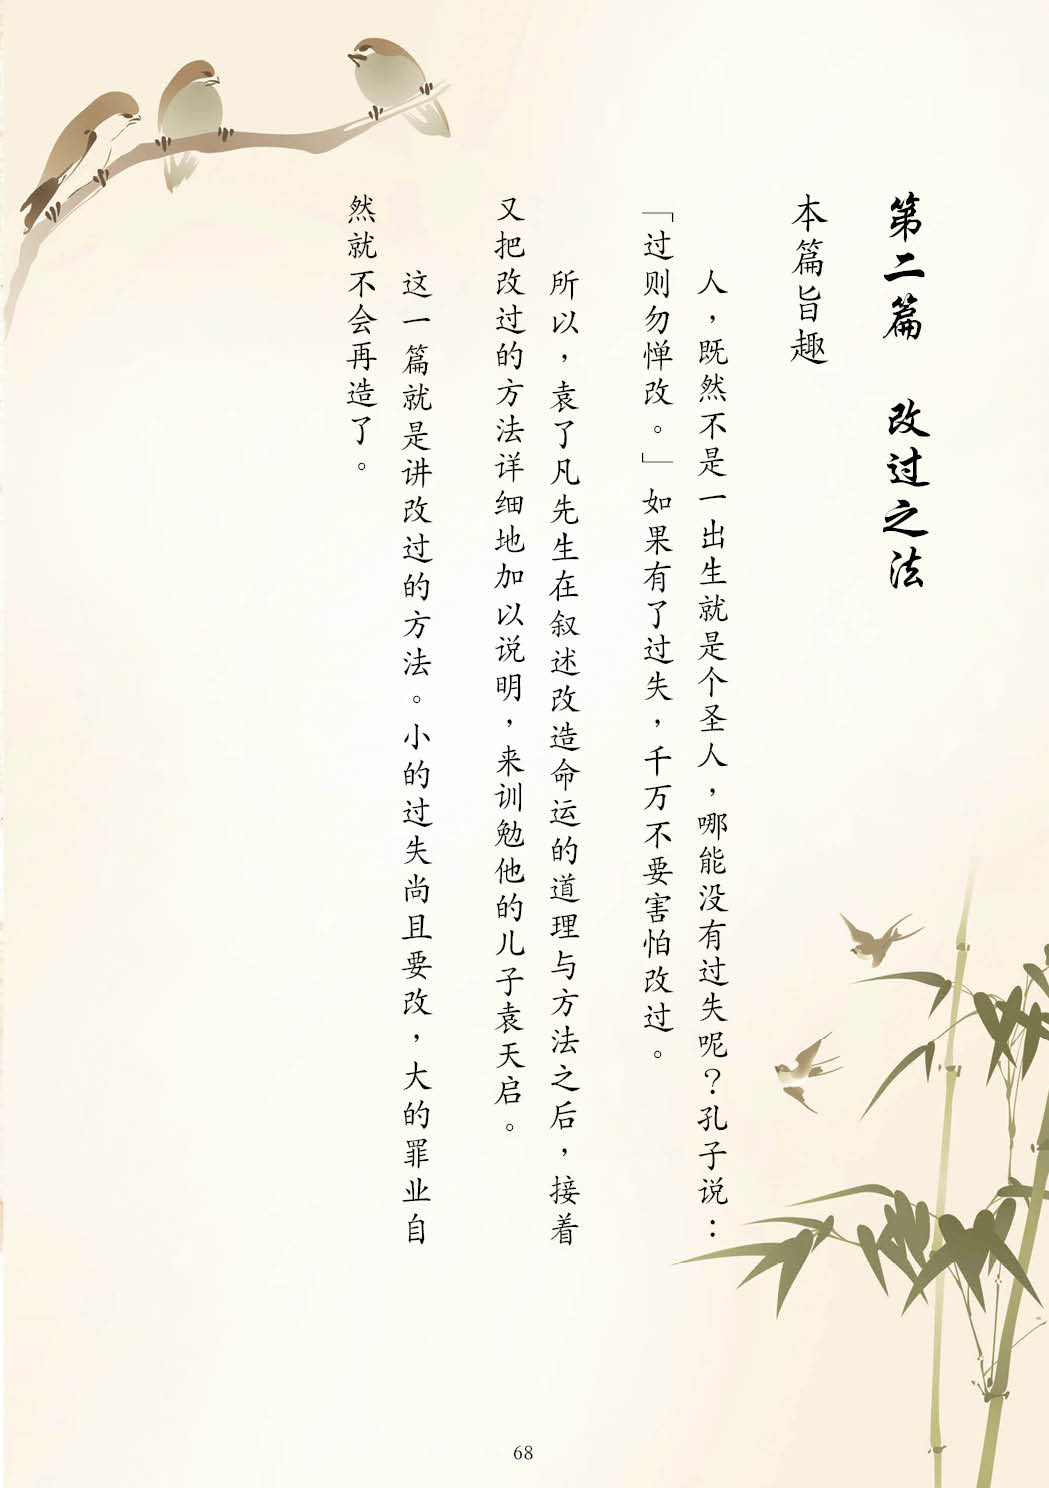 第二篇　改过之法
本篇旨趣
人，既然不是一出生就是个圣人，哪能没有过失呢？孔子说：
「过则勿惮改。」如果有了过失，千万不要害怕改过。
所以，袁了凡先生在叙述改造命运的道理与方法之后，接着
又把改过的方法详细地加以说明，来训勉他的儿子袁天启。
这一篇就是讲改过的方法。小的过失尚且要改，大的罪业自
然就不会再造了。
68